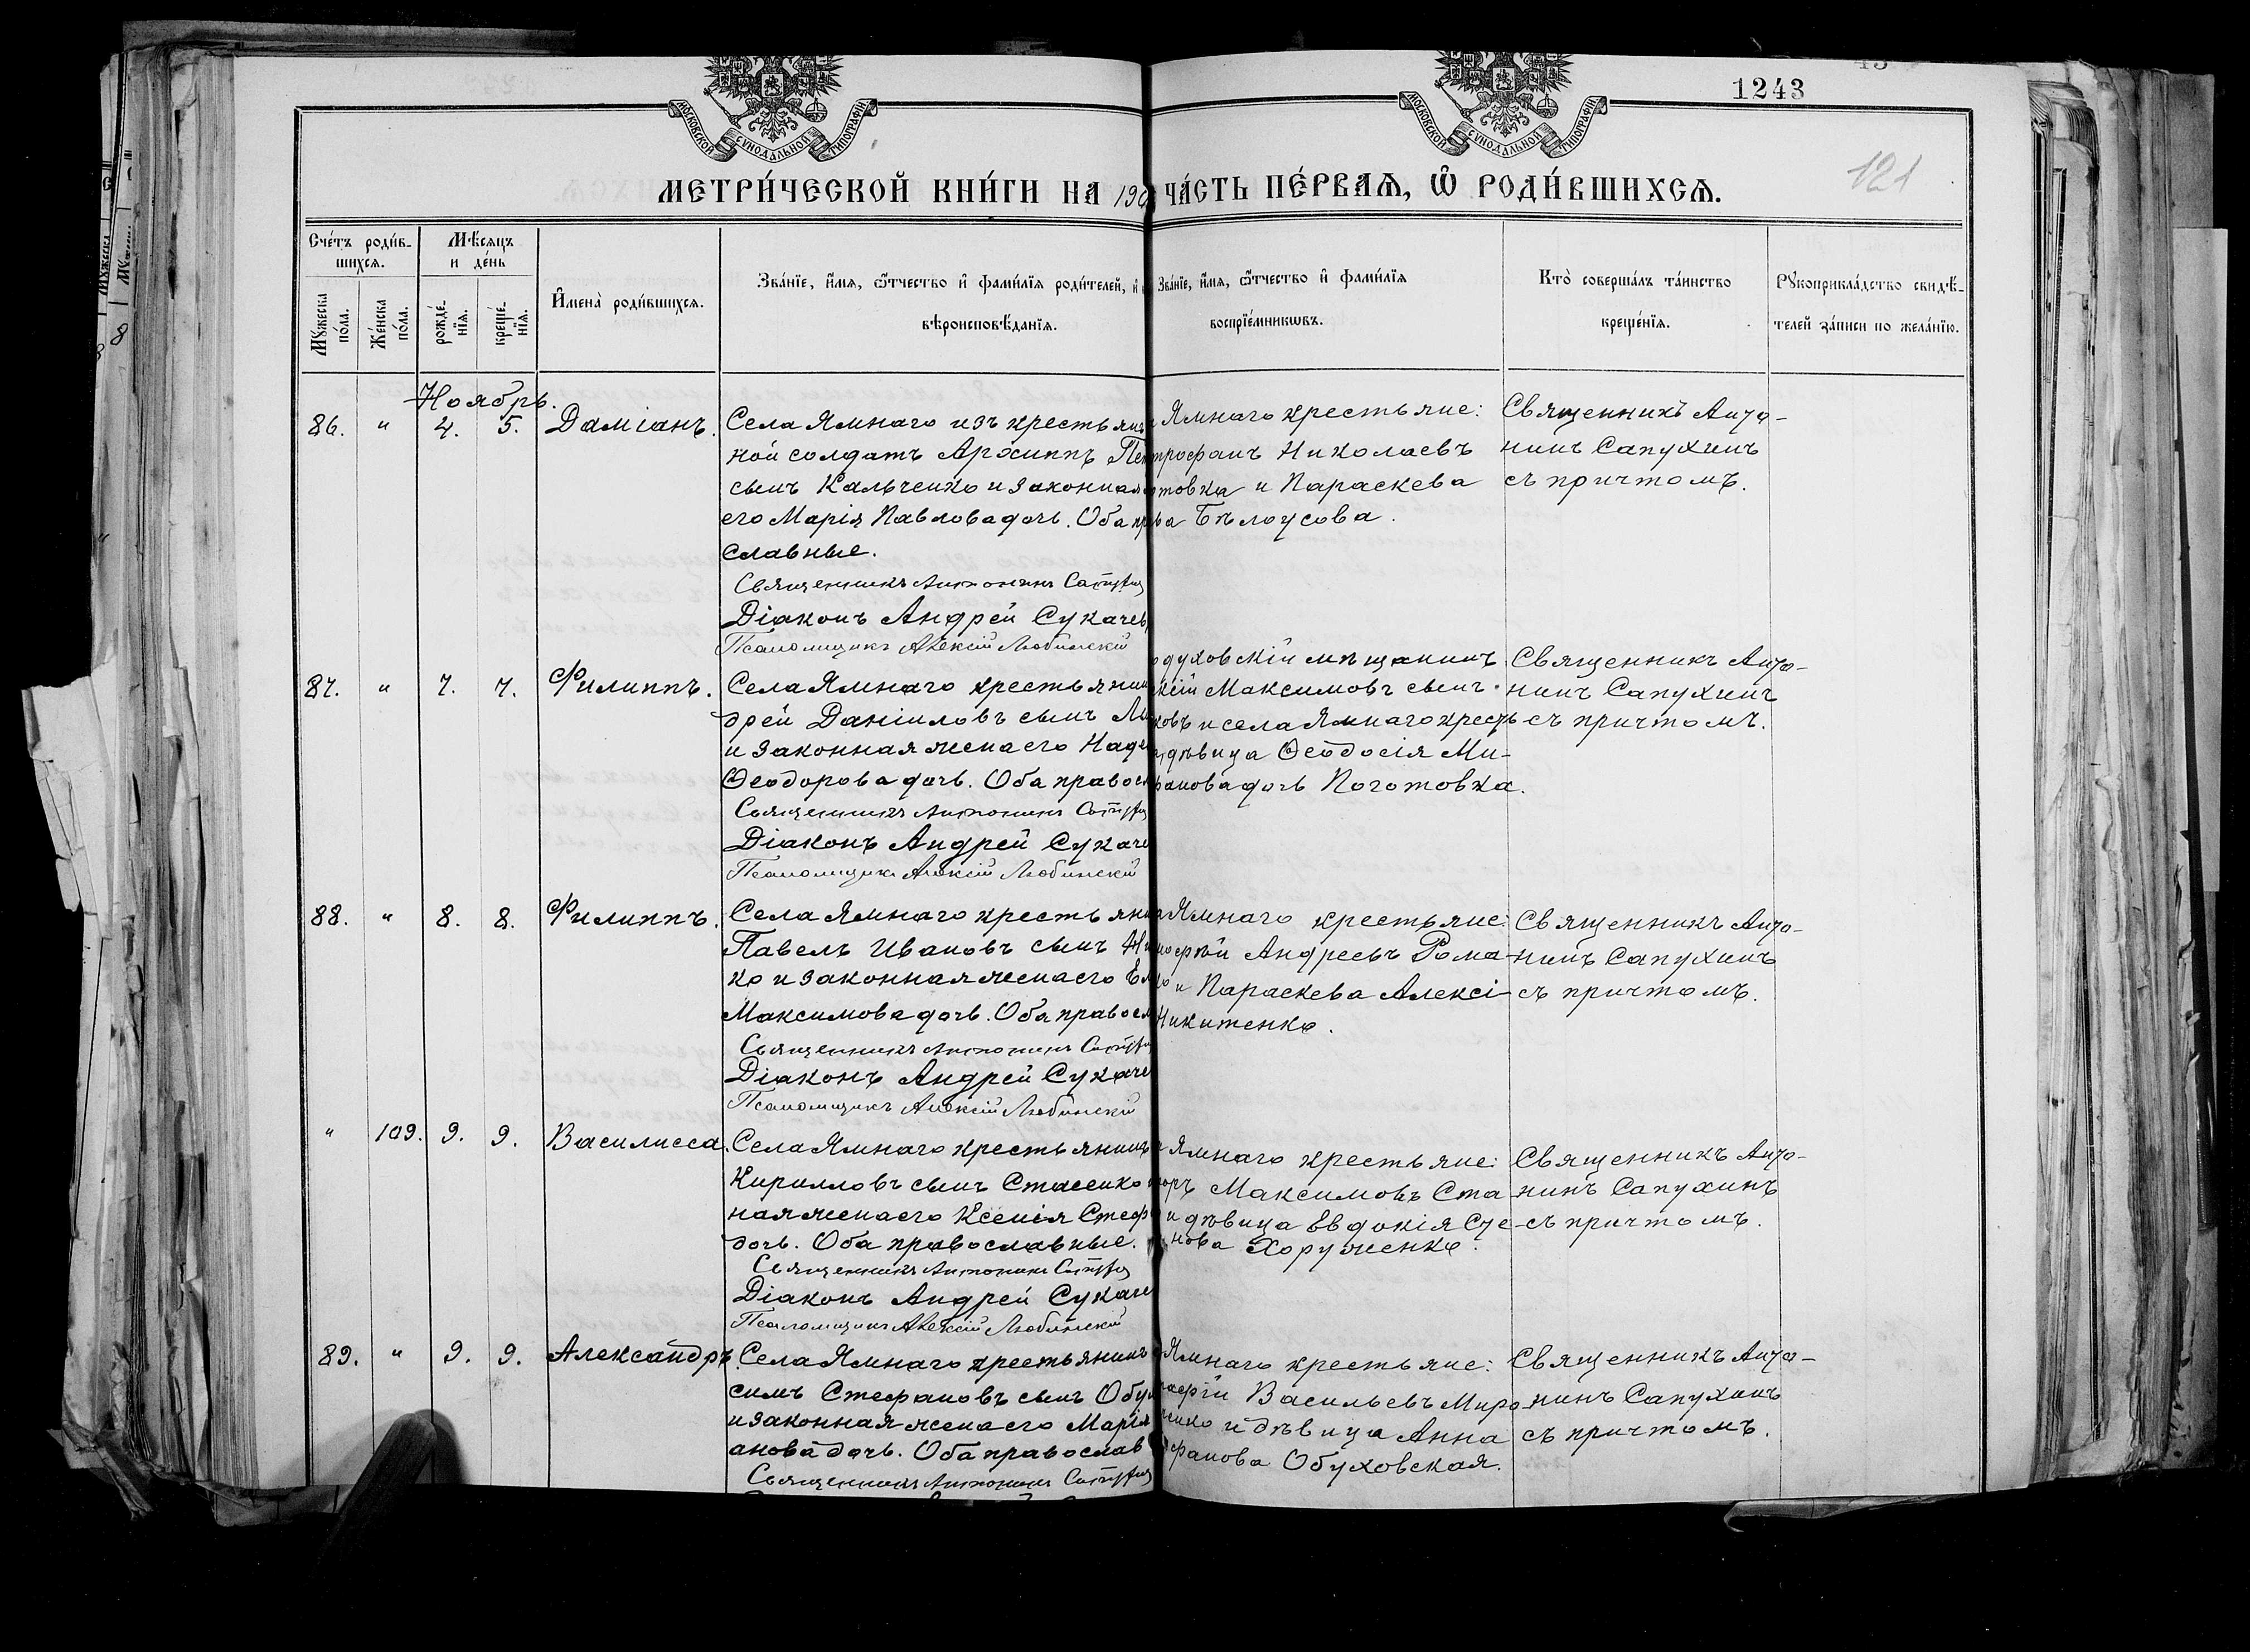 1243
121
МОСКОВСКОЙ СѴНОДАЛЬНОЙ ТИПОГРАФІИ
МОСКОВСКОЙ СѴНОДАЛЬНОЙ ТИПОГРАФІИ
МЕТРИ́ЧЕСКОЙ КНИ́ГИ НА 190 ЧА́СТЬ ПЕ́РВАѦ, Ѡ҆ РОДИ́ВШИХСѦ.
Сче́тъ роди́в-
шихсѧ.
Мѹ́жеска по́ла.
Же́нска по́ла.
Мѣ́сѧцъ
и де́нь
рожде́-
нїѧ.
креще́-
нїѧ.
И҆мена̀ роди́вшихсѧ.
Зва́нїе, и҆́мѧ, ѻ҆́тчество и҆ фами́лїѧ роди́телей, и҆
вѣроисповѣ́данїѧ.
Зва́нїе, и҆́мѧ, ѻ҆́тчество и҆ фами́лїѧ
воспрїе́мникѡвъ.
Кто̀ соверша́лъ та́инство
креще́нїѧ.
Рꙋкоприкла́дство свидѣ́-
телей за́писи по жела́нїю.
Ноябрь.
86. " 4. 5. Даміанъ.
Села Ямнаго изъ крестьян
ной солдатъ Архиппъ
сынъ Кальченко и законная
его Марія Павлова дочь. Оба пр
славные.
Священникъ Антонинъ Сапух
Діаконъ Андрей Сукачев
Псаломщикъ Алексій Любинскій
Ямнаго крестьяне:
трофанъ Николаевъ
товка и Параскева
ва Бѣлоусова.
Священникъ Анто-
нинъ Сапухинъ
съ причтомъ.
87. " 7. 7. Филиппъ.
Села Ямнаго крестьянин
дрей Даніиловъ сынъ
и законная жена его Наде
Ѳеодорова дочь. Оба правосл
Священникъ Антонинъ Сапух
Діаконъ Андрей Сукаче
Псаломщикъ Алексій Любинскій
одуховскій мѣщанинъ
кій Максимовъ сынъ
ковъ и села Ямнаго кресть
дѣвица Ѳеодосія Ми-
фанова дочь Поготовка.
Священникъ Анто-
нинъ Сапухинъ
съ причтомъ.
88. " 8. 8. Филиппъ.
Села Ямнаго крестьяни
Павелъ Ивановъ сынъ Ни
ко и законная жена его
Максимова дочь. Оба правосл
Священникъ Антонинъ Сапух
Діаконъ Андрей Сукаче
Псаломщикъ Алексій Любинскій
Ямнаго крестьяне:
моѳей Андреевъ Рома-
ко и Параскева Алексі-
Никитенко.
Священникъ Анто-
нинъ Сапухинъ
съ причтомъ.
" 109. 9. 9. Василисса.
Села Ямнаго крестьянинъ
Кирилловъ сынъ Стасенко
ная жена его Ксенія Стеф
дочь. Оба православные.
Священникъ Антонинъ Сапух
Діаконъ Андрей Сукаче
Псаломщикъ Алексій Любинскій
Ямнаго крестьяне:
оръ Максимовъ Ста-
и дѣвица Евдокія Сте-
нова Хоруженко.
Священникъ Анто-
нинъ Сапухинъ
съ причтомъ.
89. " 9. 9. Александръ.
Села Ямнаго крестьянинъ
симъ Стефановъ сынъ Обух
и законная жена его Марія
анова дочь. Оба православ
Священникъ Антонинъ Сапух
Ямнаго крестьяне:
Васильевъ Миро-
ненко и дѣвица Анна
фанова Обуховская.
Священникъ Анто-
нинъ Сапухинъ
съ причтомъ.